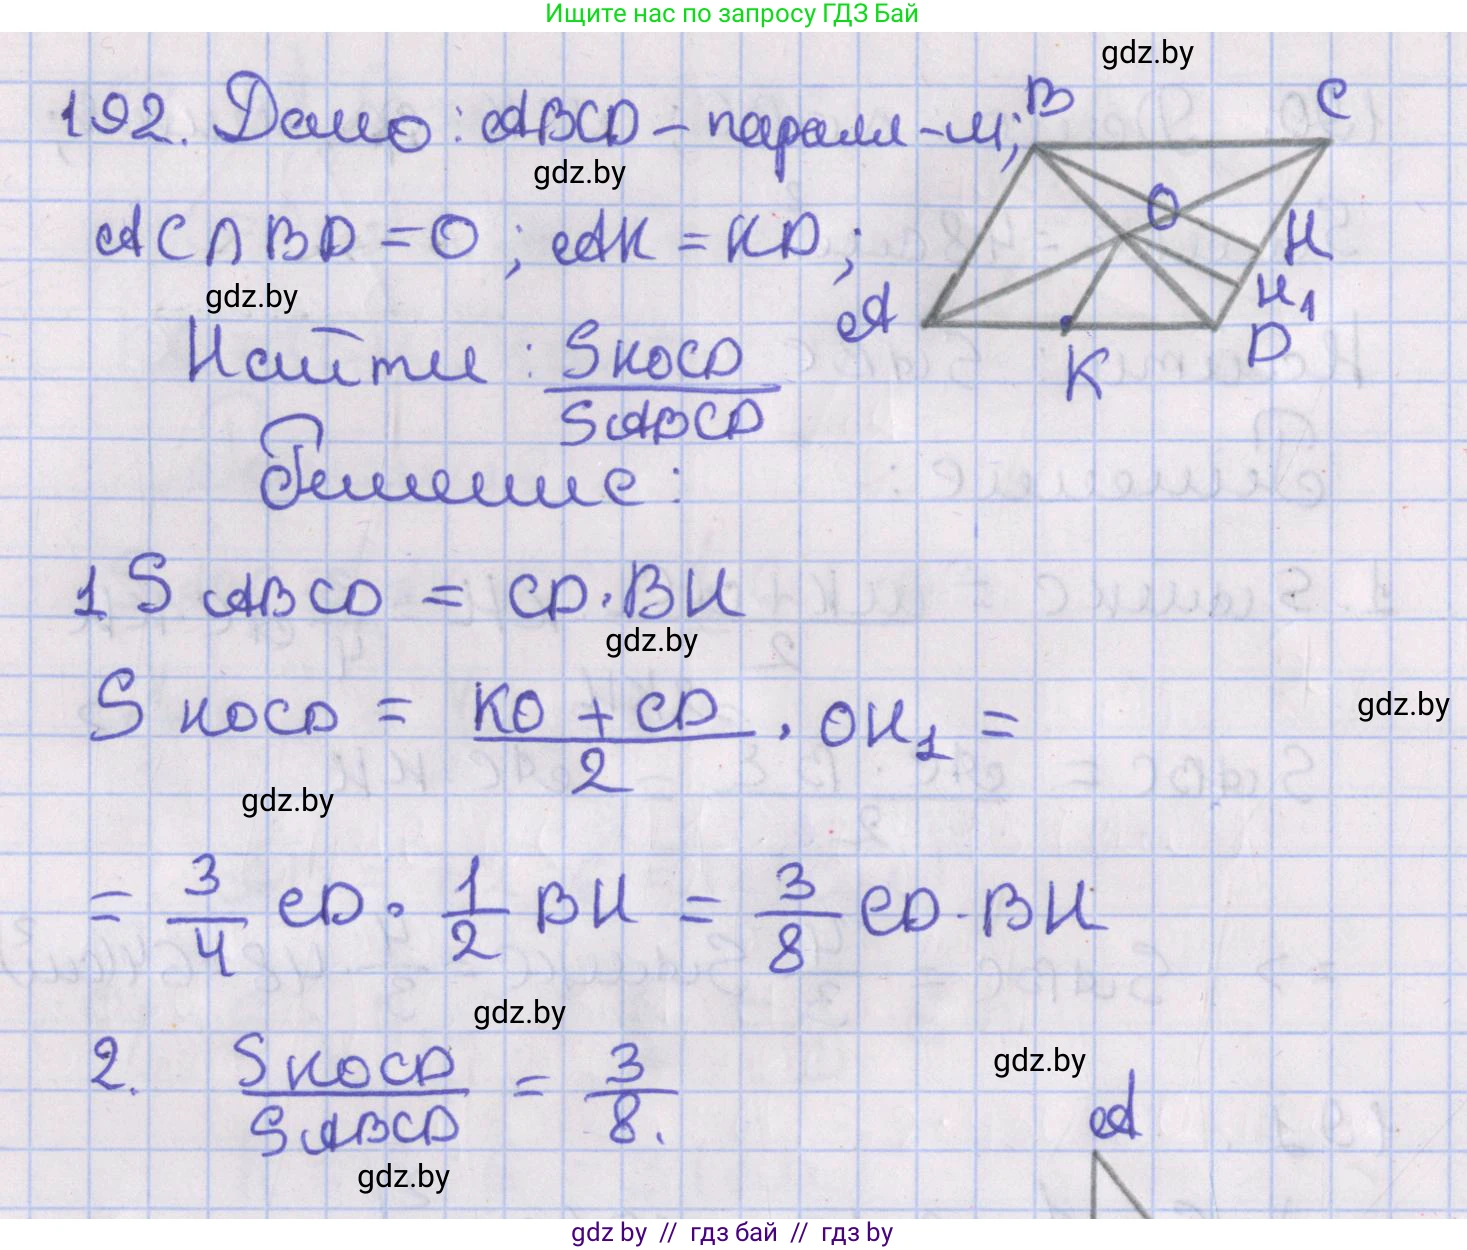 Ищите нас по запросу ГДЗ Бай
gdz.by
192. Дано: ABCD - паралл-м;
gdz.by
AC ∩ BD = O; AK = KD;
gdz.by
Найти: SKOCD / SABCD
Решение:
B
C
O
H
H1
A
K
D
1 S ABCD = CD · BH
gdz.by
S KOCD = (KO + CD) / 2 · OH1 =
gdz.by
gdz.by
= 3/4 CD · 1/2 BH = 3/8 CD · BH
gdz.by
2. SKOCD / SABCD = 3/8.
gdz.by
A
gdz.by
gdz.by // гдз бай // гдз by